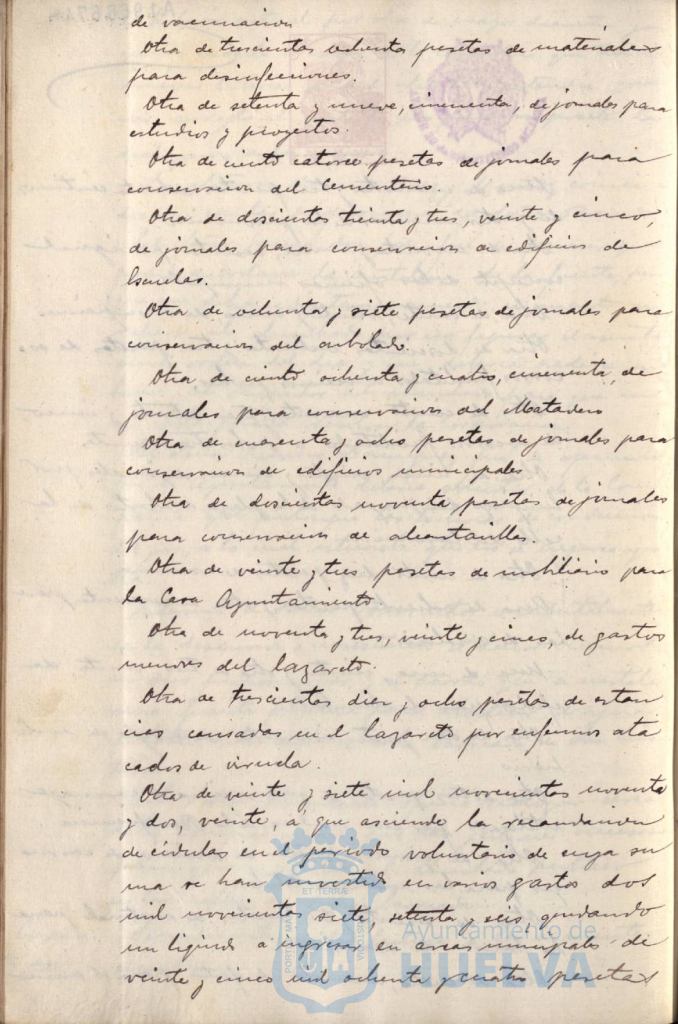 de vacunacion
Otra de trescientas ochenta pesetas de materiales
para desinfecciones.
Otra de setenta y nueve, cincuenta, de jornales para
estudios y proyectos.
Otra de ciento catorce pesetas de jornales para
conservacion del Cementerio.
Otra de doscientas treinta y tres, veinte y cinco,
de jornales para conservacion de edificios de
Escuelas.
Otra de ochenta y siete pesetas de jornales para
conservacion del arbolado.
Otra de ciento ochenta y cuatro, cincuenta, de
jornales para conservacion del Matadero
Otra de cuarenta y ocho pesetas de jornales para
conservacion de edificios municipales
Otra de doscientas noventa pesetas de jornales
para conservacion de alcantarillas.
Otra de veinte y tres pesetas de mobiliario para
la Casa Ayuntamiento
Otra de noventa y tres, veinte y cinco, de gastos
menores del lazareto.
Otra de trescientas diez y ocho pesetas de estan
cias causadas en el lazareto por enfermos ata
cados de viruela.
Otra de veinte y siete mil novecientas noventa
y dos, veinte, á que asciende la recaudacion
de cédulas en el periodo voluntario de cuya su
ma se han invertido en varios gastos dos
mil novecientas siete, setenta y seis, quedando
un líquido á ingresar en arcas municipales de
veinte y cinco mil ochenta y cuatro pesetas
Ayuntamiento de
HUELVA